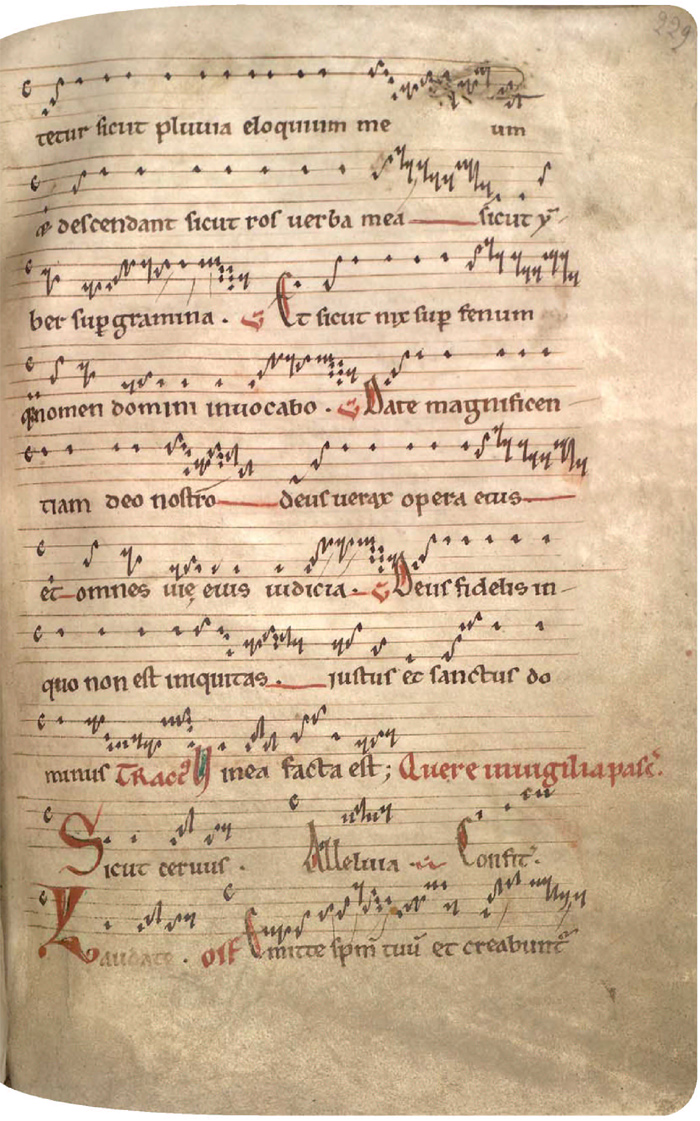 229
tetur sicut pluuia eloquium me um
& descendant sicut ros uerba mea sicut ẏ
ber sup gramina . Et sicut nix sup fenum
nomen domini inuocabo . Date magnificen
tiam deo nostro deus uerax opera eius
et omnes uię eius iudicia . Deus fidelis in
quo non est iniquitas . iustus et sanctus do
minus Tract inea facta est ; Quere inuigilia pasc.
Sicut ceruus . Alleluia . Confit.
Laudate . off Emitte spm̄ tuū et creabunt